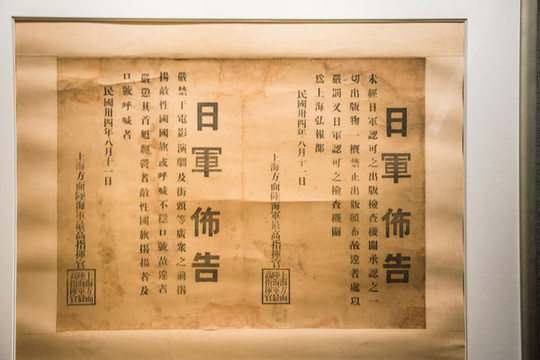 日軍佈告
未經日軍認可之出版檢查機關承認之一
切出版物一概禁止出版頒布故違者處以
嚴罰又日軍認可之檢查機關
為上海弘報部
民國卅四年八月十一日
上海方面陸海軍最高指揮官
上海方面陸海軍最高指揮官
日軍佈告
嚴禁于電影演劇及街頭等廣眾之前揭
揚敵性國國旗或呼喊不穩口號故違者
嚴懲其首魁經營者敵性國旗揭揚者及
口號呼喊者
民國卅四年八月十一日
上海方面陸海軍最高指揮官
上海方面陸海軍最高指揮官